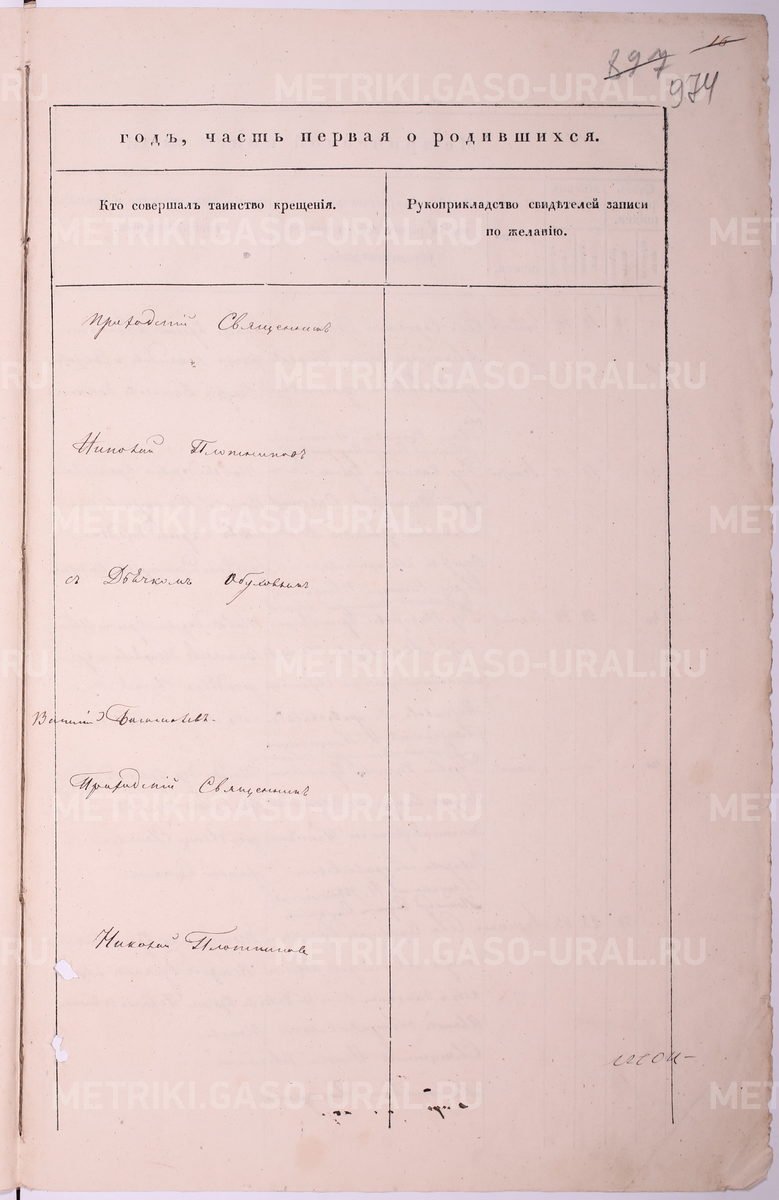 16
897
974
годъ, часть первая о родившихся.
Кто совершалъ таинство крещенія.
Рукоприкладство свидѣтелей записи
по желанію.
Приходскій Священникъ
Николай Плотниковъ
съ Дьячкомъ Обуховымъ
Василій
Приходскій Священникъ
Николай Плотниковъ
METRIKI.GASO-URAL.RU